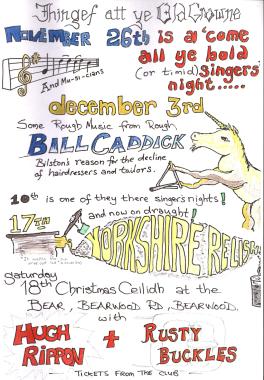 Thingef att ye Old Crowne
NOVEMBER 26th is a 'come
all ye bold
(or timid) singers'
And Mu-si-cians
night.....
december 3rd
Some Rough Music from Rough
BILL CADDICK
Bilston's reason for the decline
of hairdressers and tailors.
10th is one of they there singers nights!
17TH and now on draught!
YORKSHIRE RELISH
Saturday
18th Christmas Ceilidh at the
BEAR, BEARWOOD RD, BEARWOOD.
with
HUGH + RUSTY
RIPPON BUCKLES
TICKETS FROM THE CLUB